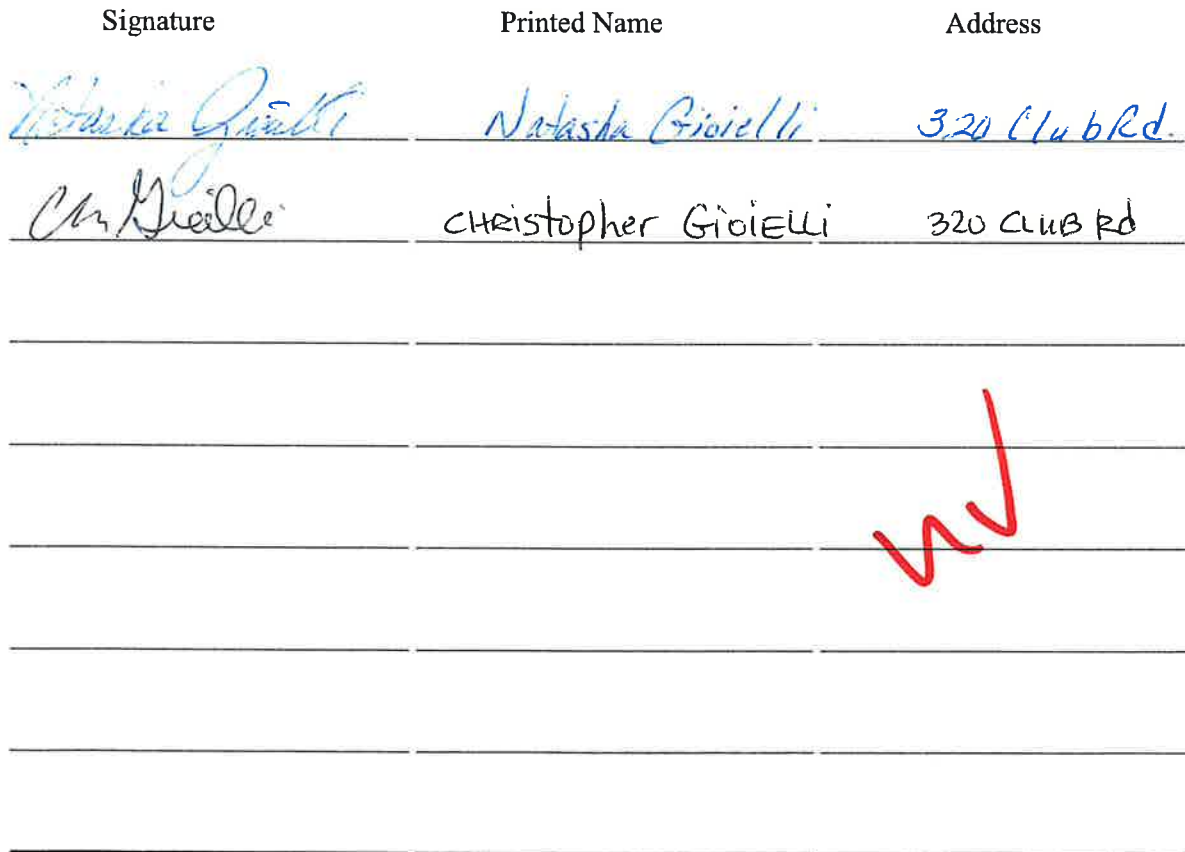 Signature Printed Name Address
Natasha Gioielli Natasha Gioielli 320 Club Rd.
Chr Gioielli CHRistopher GioiELLi 320 CLUB Rd